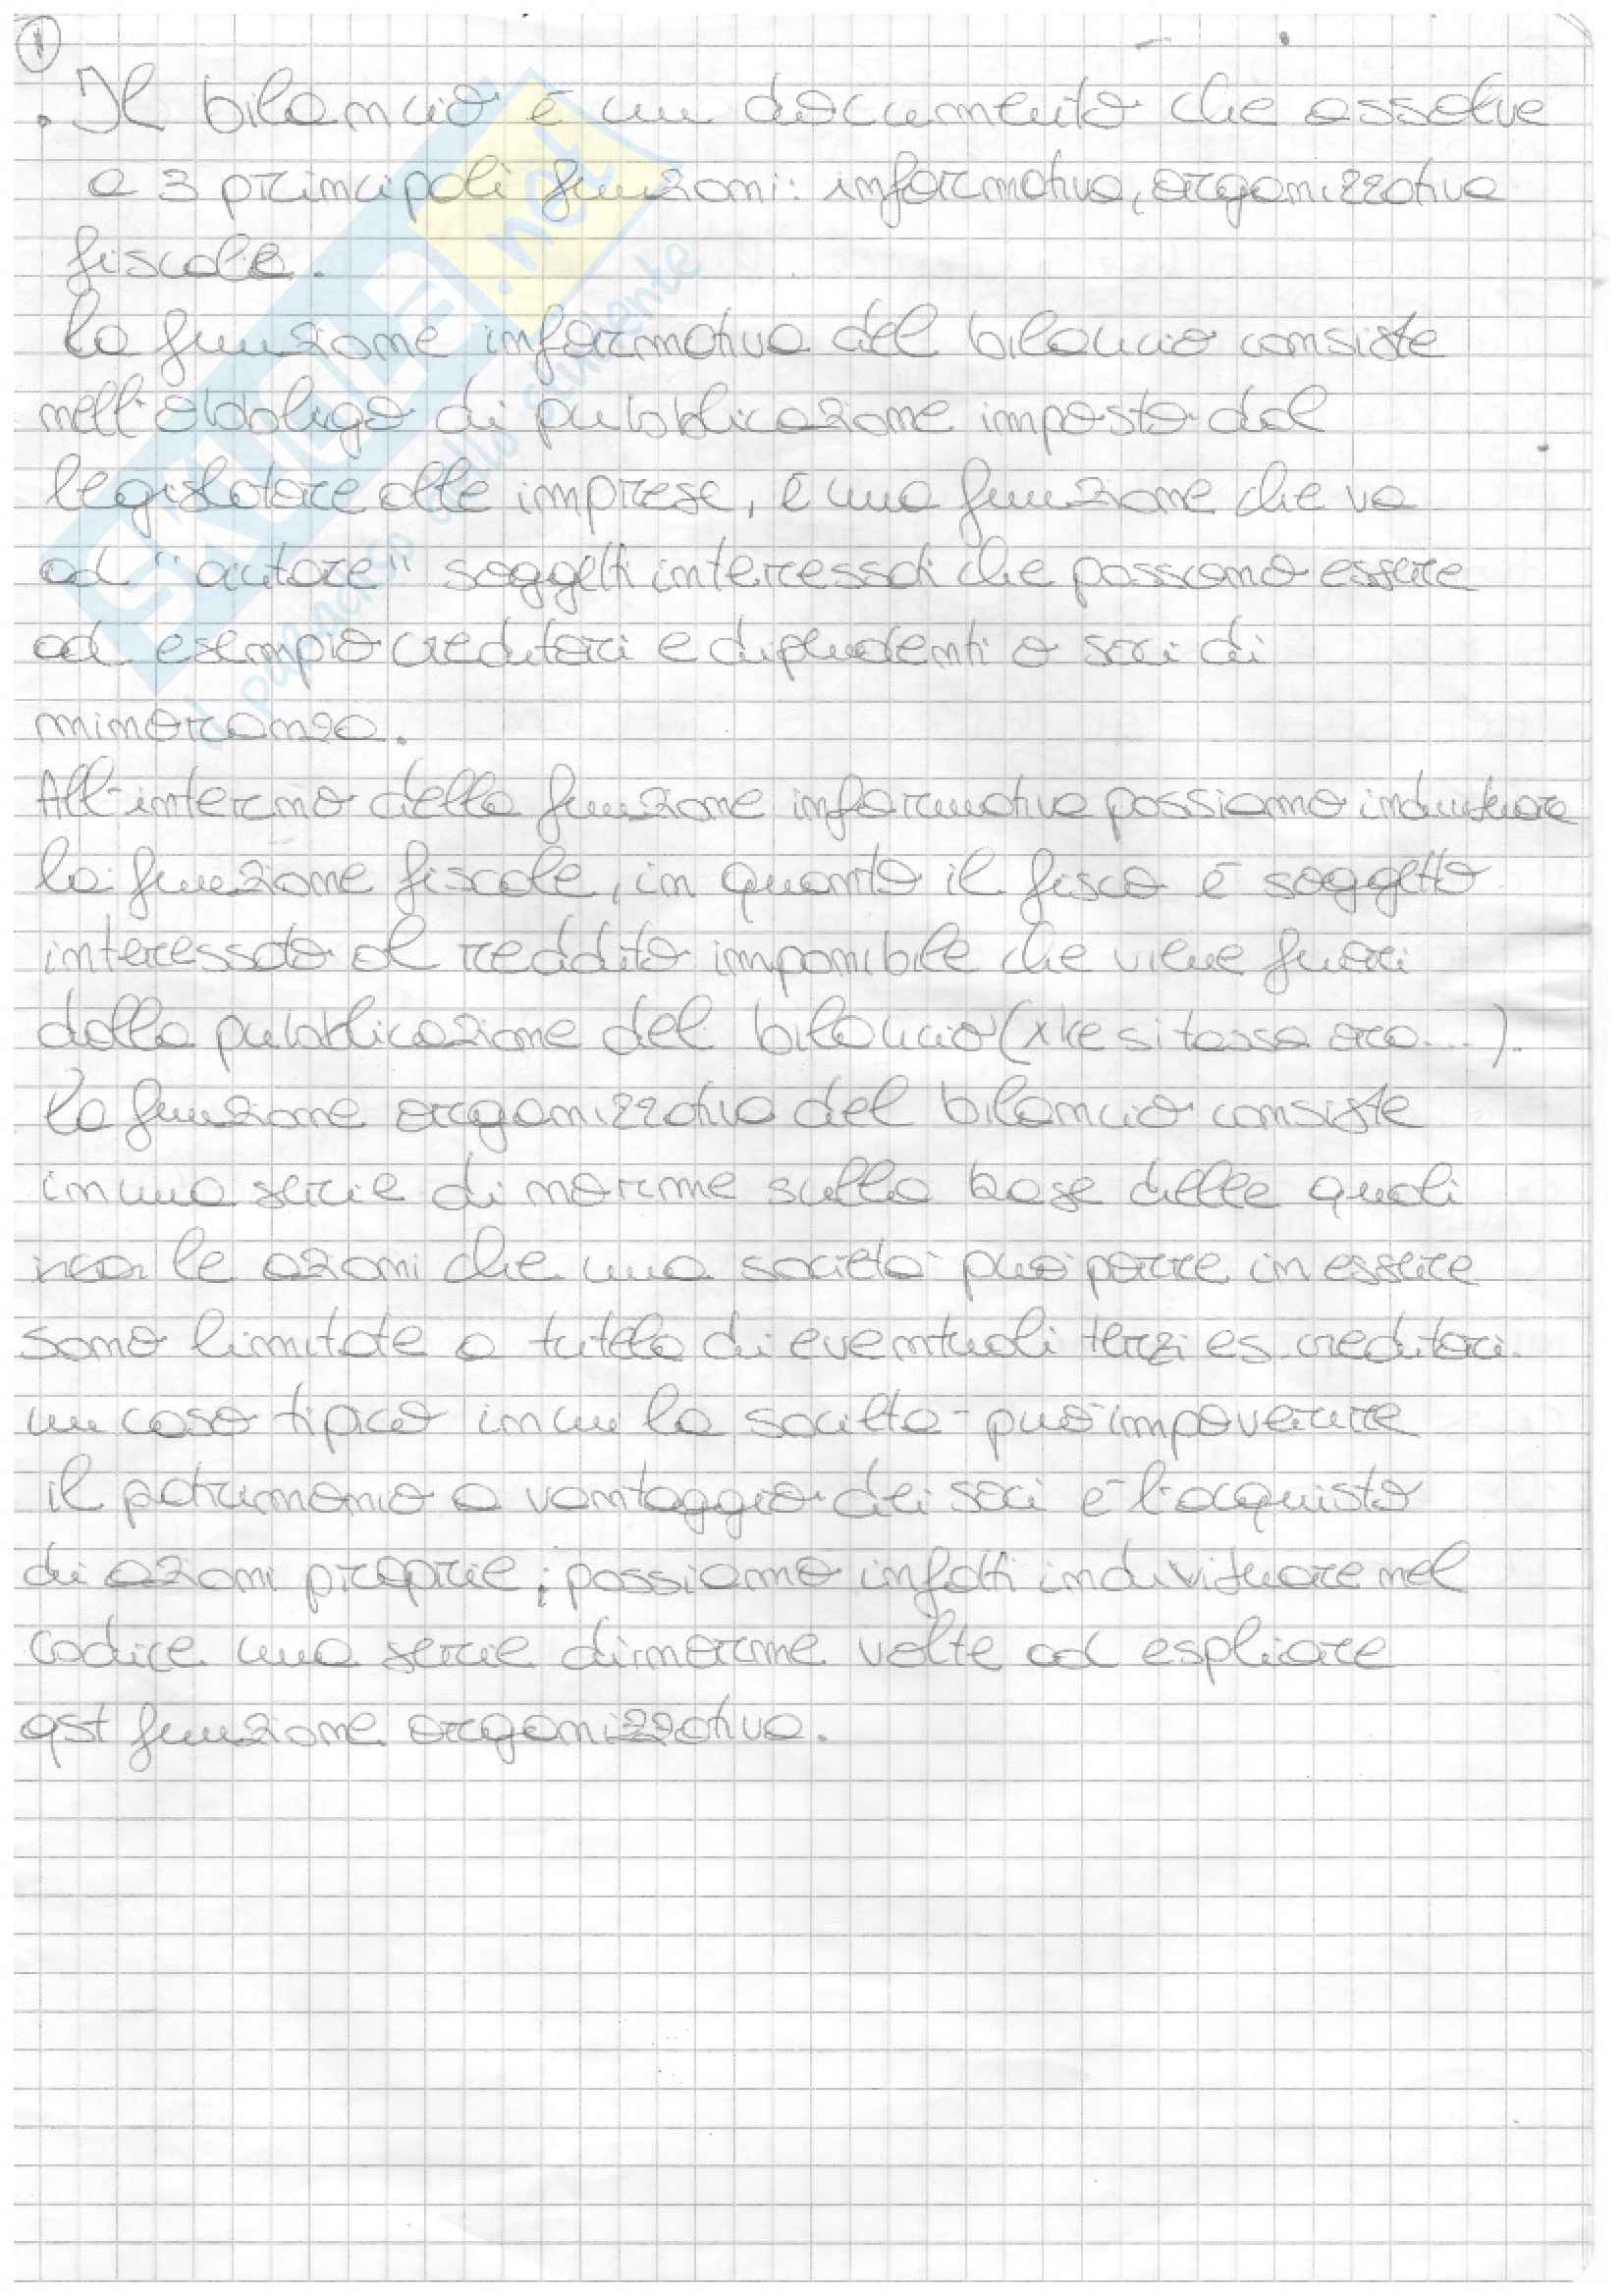 1
. Il bilancio è un documento che assolve
a 3 principali funzioni: informativa, organizzativa
fiscale.
la funzione informativa del bilancio consiste
nell'obbligo di pubblicazione imposto dal
legislatore alle imprese, è una funzione che va
ad "aiutare" soggetti interessati che possono essere
ad esempio creditori e dipendenti o soci di
minoranza.
All'interno della funzione informativa possiamo individuare
la funzione fiscale, in quanto il fisco è soggetto
interessato al reddito imponibile che viene fuori
dalla pubblicazione del bilancio (xke si tassa ...).
La funzione organizzativa del bilancio consiste
in una serie di norme sulla base delle quali
le azioni che una società può porre in essere
sono limitate a tutela di eventuali terzi es. creditori.
un caso tipico in cui la società può impoverire
il patrimonio a vantaggio dei soci è l'acquisto
di azioni proprie; possiamo infatti individuare nel
codice una serie di norme volte ad espliare
qst funzione organizzativa.
SKUOLA.net
il paradiso dello studente